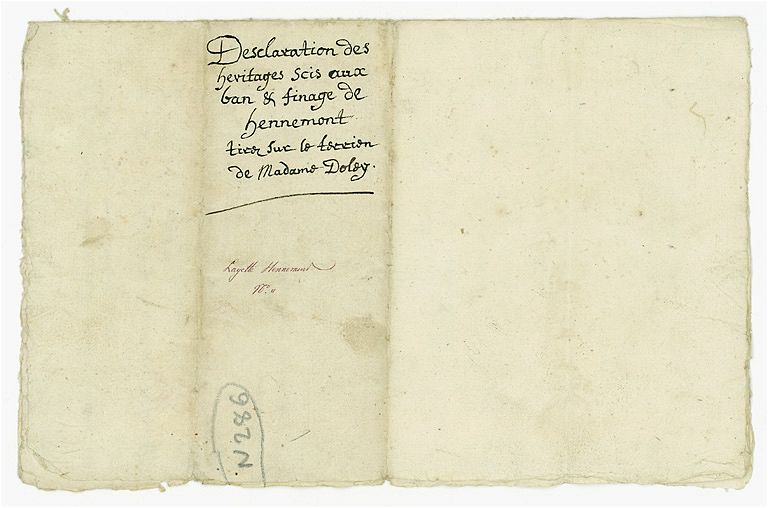 Desclaration des
heritages scis aux
ban & finage de
hennemont
tirez sur le terrien
de Madame Doley.
Layette Hennemont
N.º 11
N 286